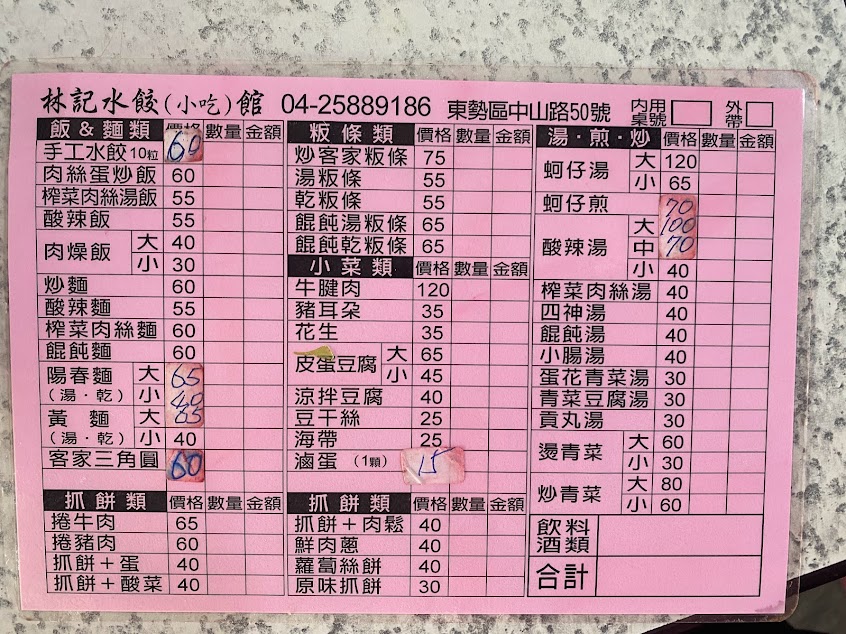 林記水餃(小吃)館 04-25889186 東勢區中山路50號 內用桌號 外帶
飯&麵類 價格 數量 金額
手工水餃10粒 60
肉絲蛋炒飯 60
榨菜肉絲湯飯 55
酸辣飯 55
肉燥飯 大 40
小 30
炒麵 60
酸辣麵 55
榨菜肉絲麵 60
餛飩麵 60
陽春麵 大 65
(湯·乾) 小 40
黃麵 大 65
(湯·乾) 小 40
客家三角圓 60
抓餅類 價格 數量 金額
捲牛肉 65
捲豬肉 60
抓餅+蛋 40
抓餅+酸菜 40
粄條類 價格 數量 金額
炒客家粄條 75
湯粄條 55
乾粄條 55
餛飩湯粄條 65
餛飩乾粄條 65
小菜類 價格 數量 金額
牛腱肉 120
豬耳朵 35
花生 35
皮蛋豆腐 大 65
小 45
涼拌豆腐 40
豆干絲 25
海帶 25
滷蛋 (1顆) 15
抓餅類 價格 數量 金額
抓餅+肉鬆 40
鮮肉蔥 40
蘿蔔絲餅 40
原味抓餅 30
湯·煎·炒 價格 數量 金額
蚵仔湯 大 120
小 65
蚵仔煎 70
酸辣湯 大 100
中 70
小 40
榨菜肉絲湯 40
四神湯 40
餛飩湯 40
小腸湯 40
蛋花青菜湯 30
青菜豆腐湯 30
貢丸湯 30
燙青菜 大 60
小 30
炒青菜 大 80
小 60
飲料
酒類
合計